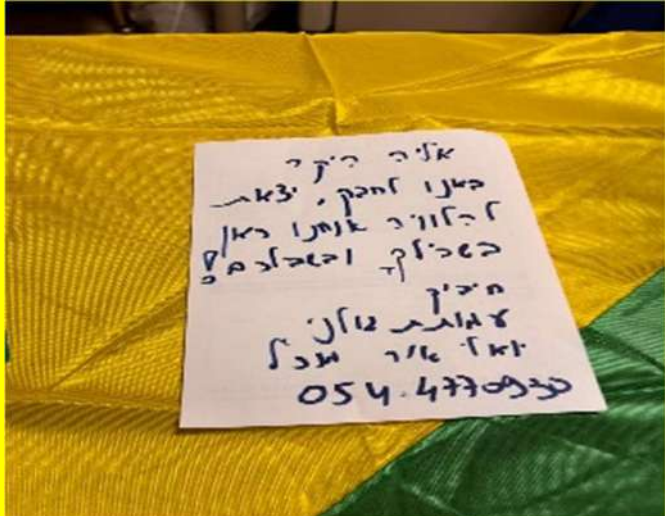 אליה היקר
באנו לחבק, יצאת
להלוויה אנחנו כאן
בשבילך ובשבילכם!
חיבוק
עמותת גולני
יואלי אור מנכל
054.4770930